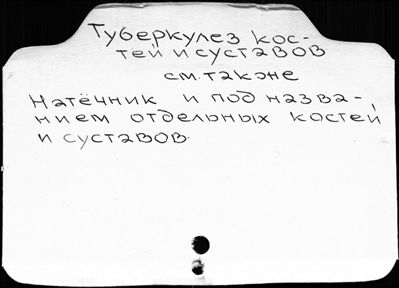 Туберкулез кос-
тей и суставов
см. также
Натёчник и под назва-
нием отдельных костей
и суставов.